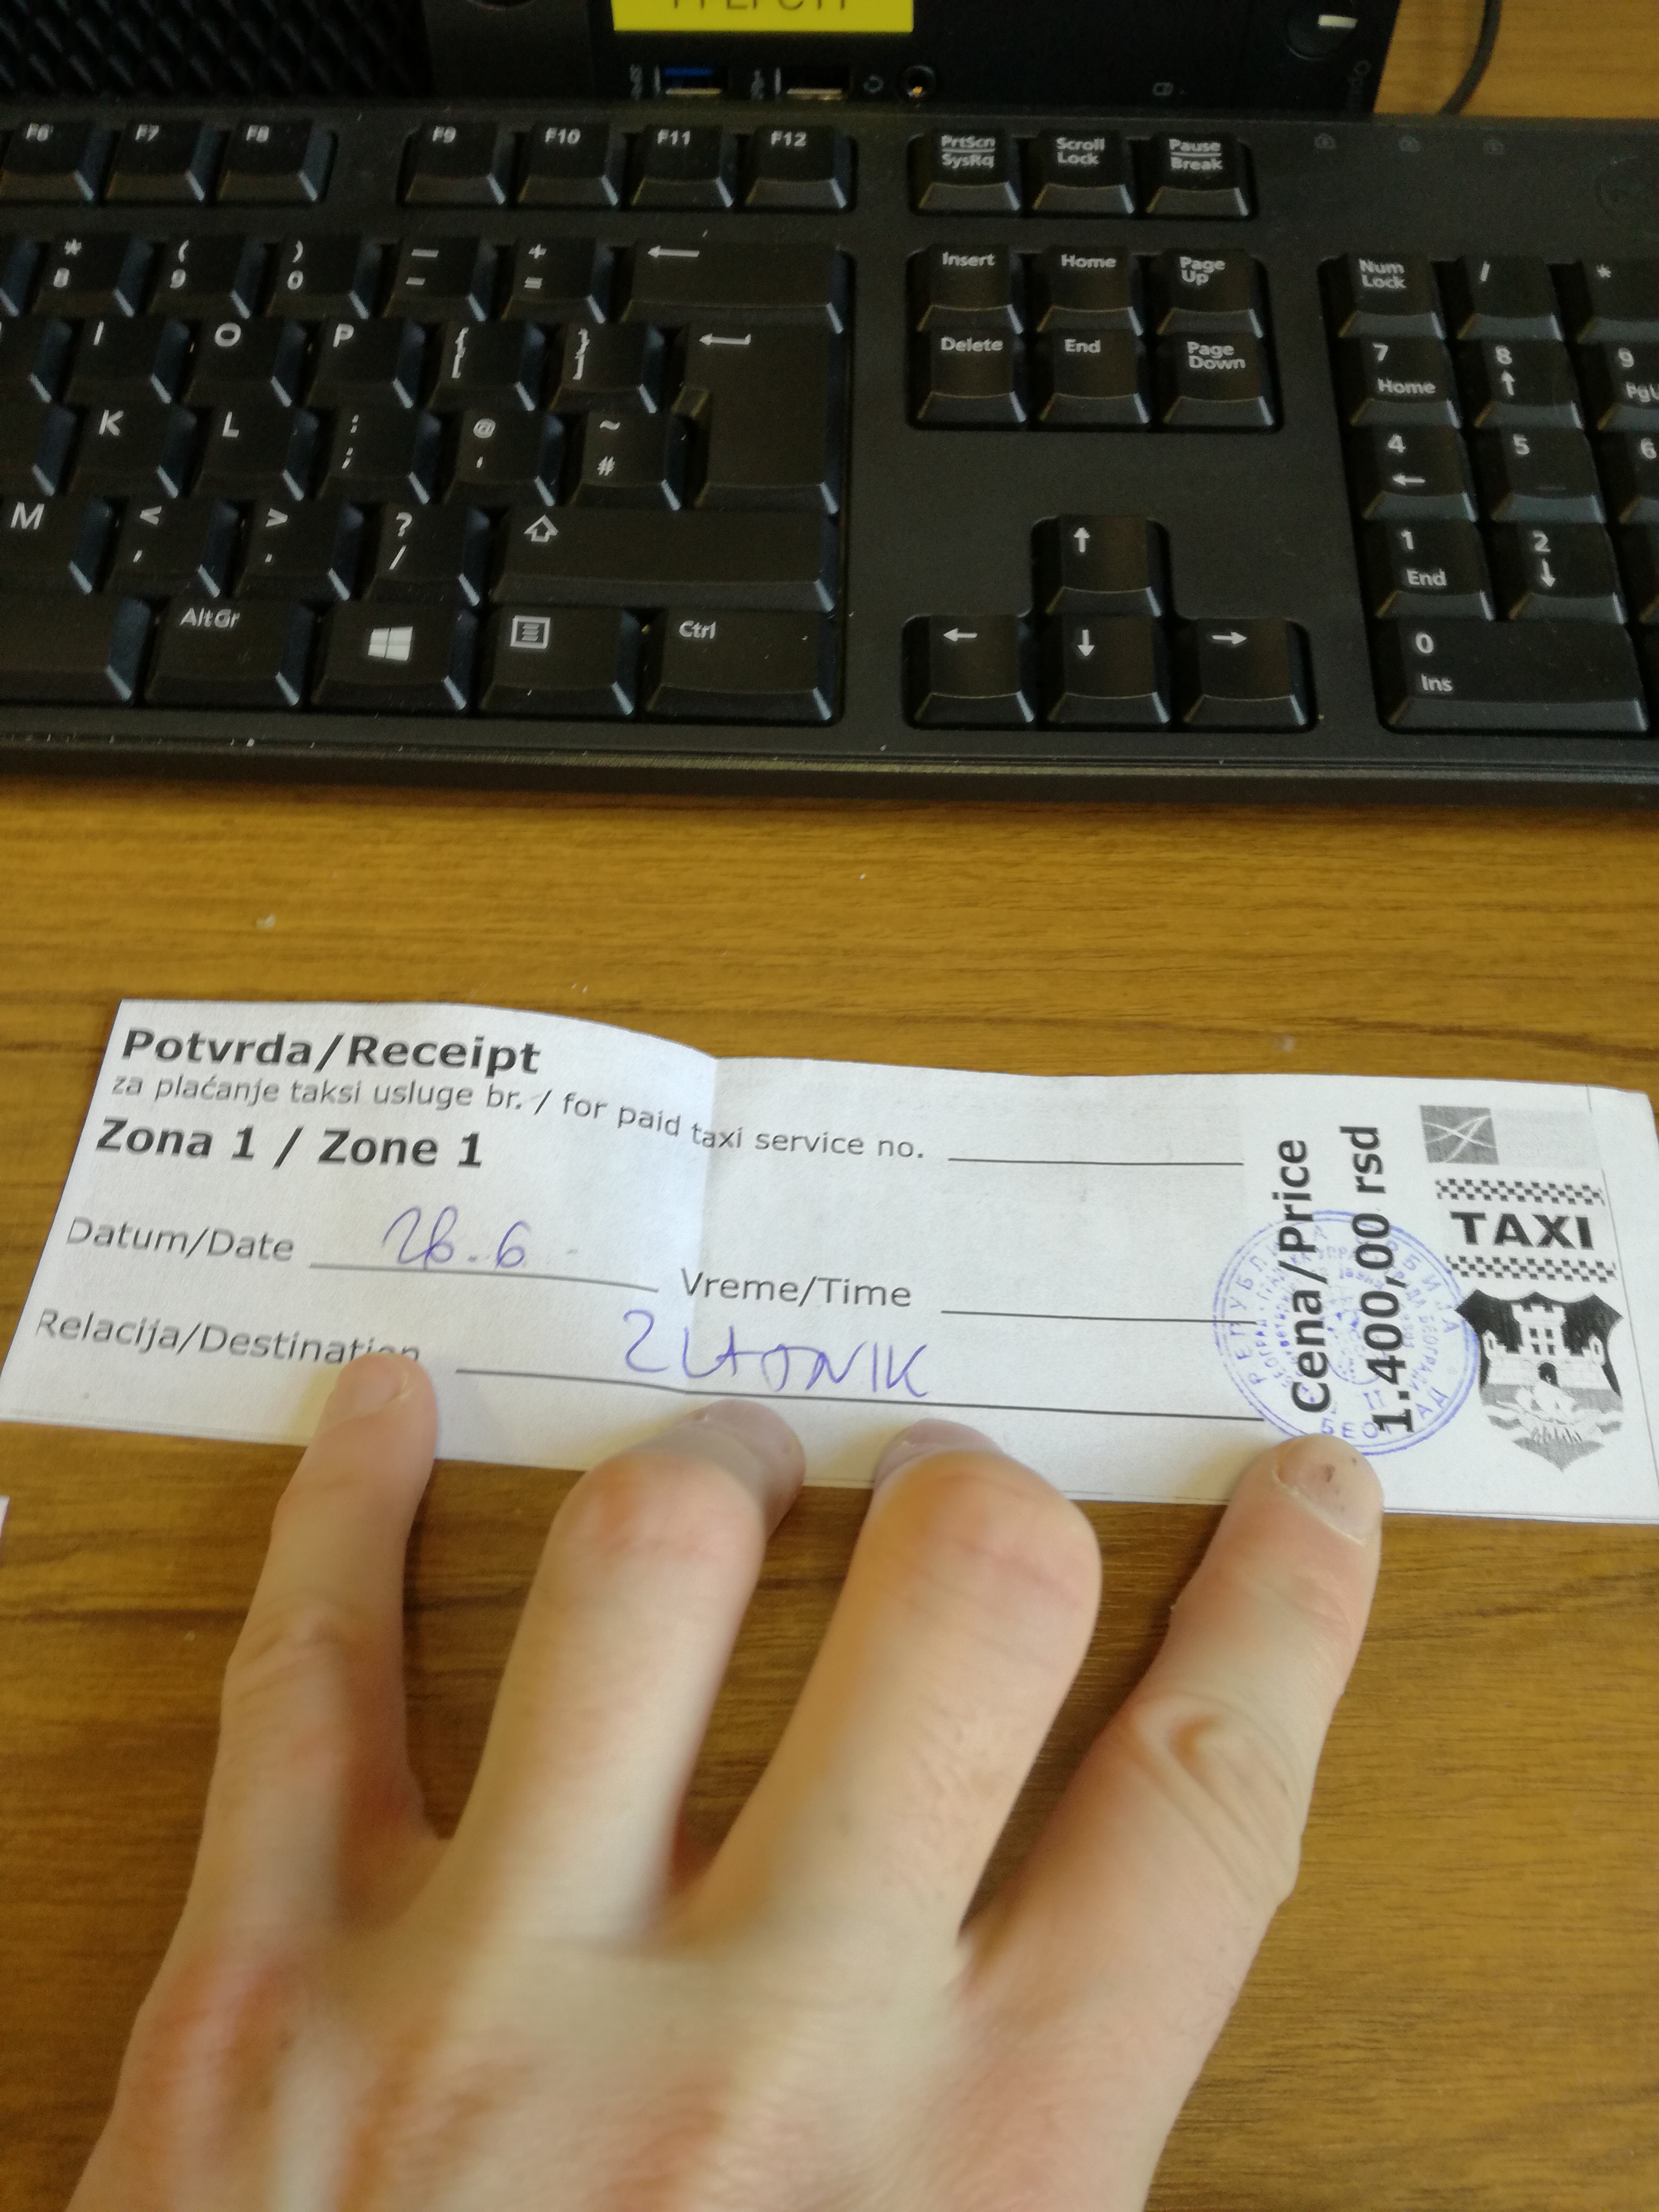 F6 F7 F8 F9 F10 F11 F12 PrtScn SysRq Scroll Lock Pause Break
* 8 ( 9 ) 0 — - + = Insert Home Page Up Num Lock / *
I O P { [ } ] Delete End Page Down 7 Home 8 9 PgU
K L : ; @ ' ~ # 4 5 6
M < , > . ? / 1 End 2
AltGr Ctrl 0 Ins
Potvrda/Receipt
za plaćanje taksi usluge br. / for paid taxi service no.
Zona 1 / Zone 1
Datum/Date 26.6 Vreme/Time
Relacija/Destination ZLATNIK
Cena/Price
1.400,00 rsd
TAXI